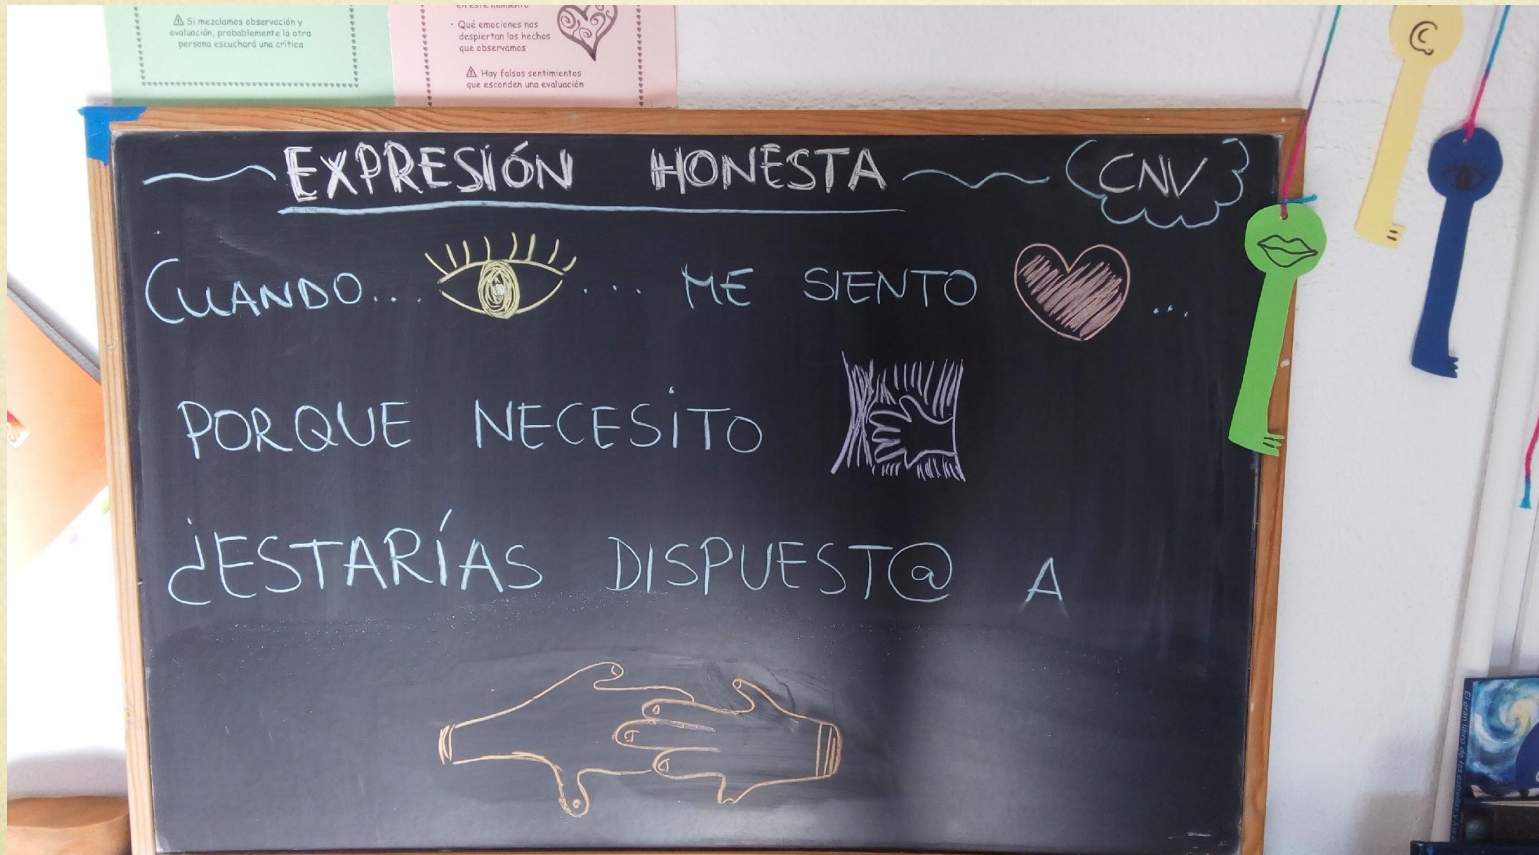 ⚠ Si mezclamos observación y
evaluación, probablemente la otra
persona escuchará una crítica
• Qué emociones nos
despiertan los hechos
que observamos
⚠ Hay falsos sentimientos
que esconden una evaluación
EXPRESIÓN HONESTA CNV
CUANDO... ... ME SIENTO ...
PORQUE NECESITO
¿ESTARÍAS DISPUEST@ A